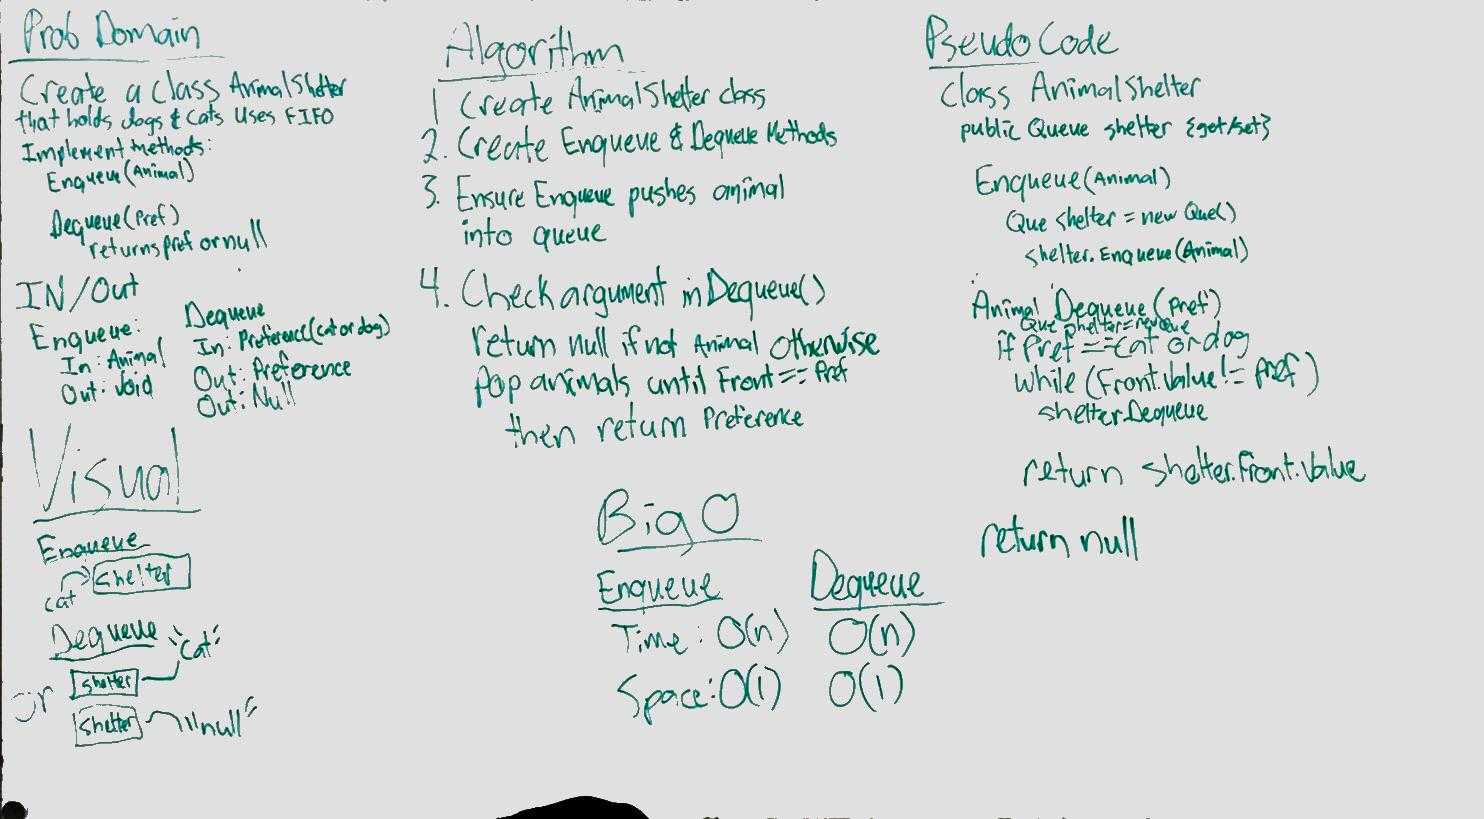 Prob Domain
Create a class AnimalShelter
that holds dogs & cats Uses FIFO
Implement methods:
Enqueue(Animal)
Dequeue(Pref)
returns pref or null
IN/Out
Enqueue:
In: Animal
Out: Void
Dequeue
In: Preference(cat or dog)
Out: Preference
Out: Null
Visual
Enqueue
cat
shelter
Dequeue
"Cat"
shelter
or
shelter
"null"
Algorithm
1 Create AnimalShelter class
2. Create Enqueue & Dequeue Methods
3. Ensure Enqueue pushes animal
into queue
4. Check argument in Dequeue()
return null if not Animal otherwise
pop animals until Front == Pref
then return Preference
Big O
Enqueue
Dequeue
Time: O(n) O(n)
Space: O(1) O(1)
Pseudo Code
class AnimalShelter
public Queue shelter {get/set}
Enqueue(Animal)
Que shelter = new Que()
shelter.Enqueue(Animal)
Animal Dequeue(Pref)
Que shelter =
if Pref == cat or dog
while (Front.Value != Pref)
shelter.Dequeue
return shelter.Front.Value
return null